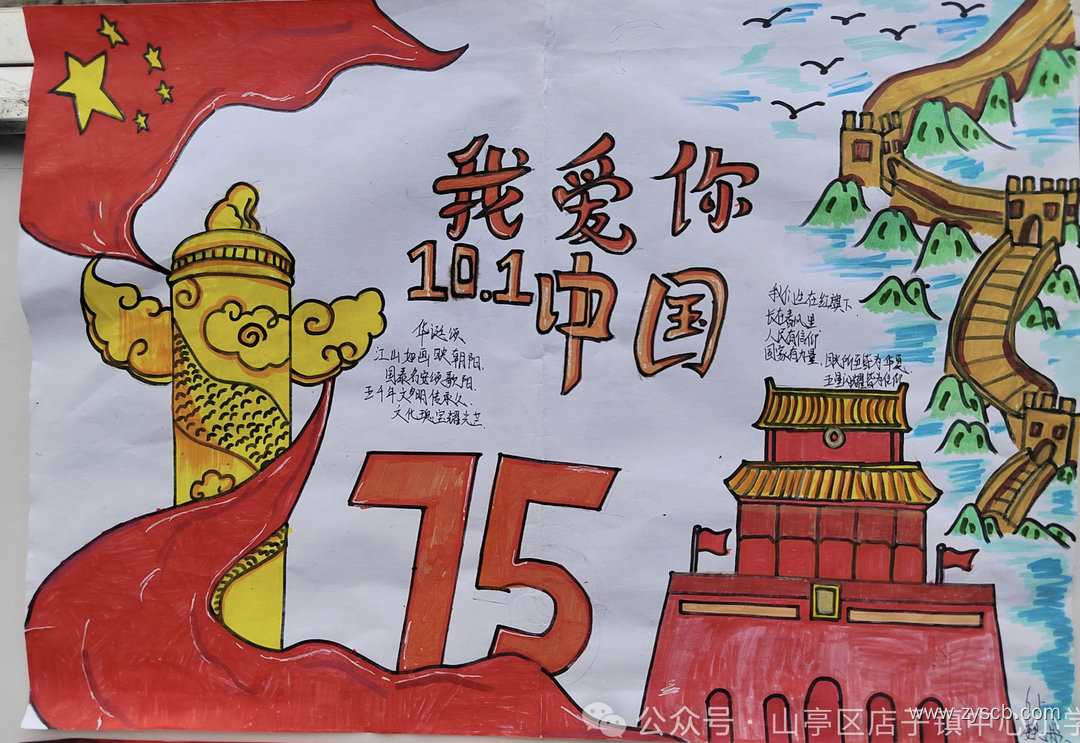 我爱你
10.1
中国
华诞颂
江山如画映朝阳.
国泰民安颂歌阳.
五千年文明传承久.
文化瑰宝耀光芒.
我们生在红旗下.
长在春风里
人民有信仰
国家有力量.目光所至皆为华夏.
五星闪耀皆为信仰
75
公众号·山亭区店子镇中心小学
www.zyscb.com